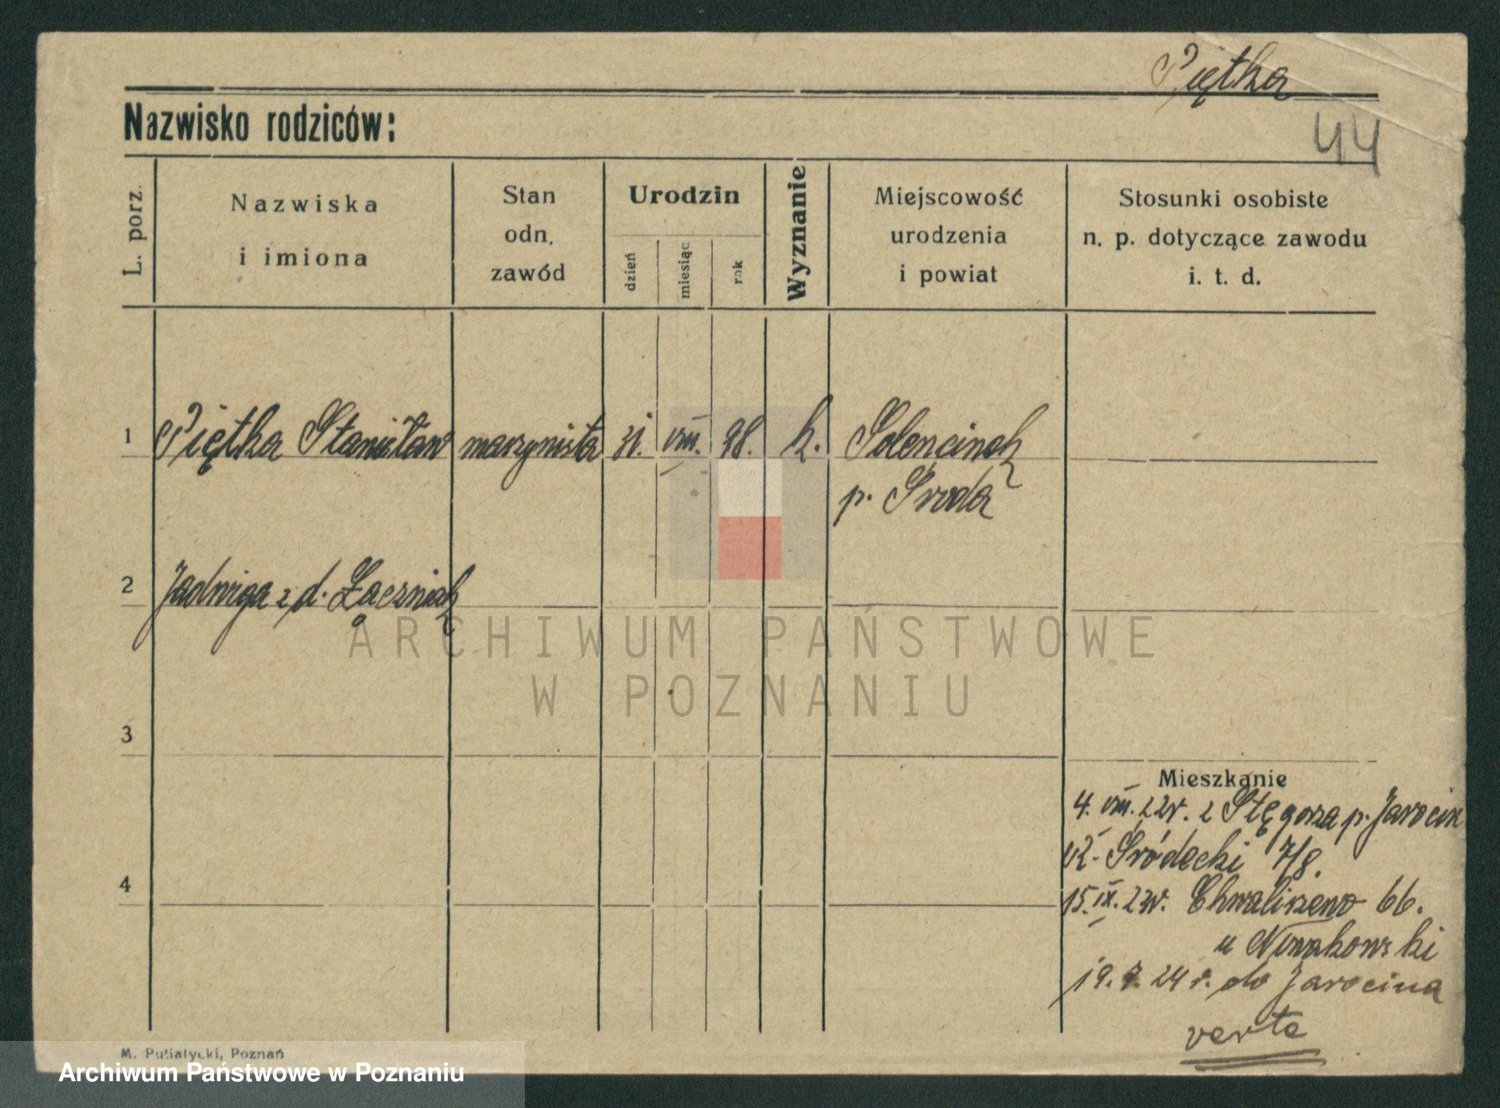 Piętka
Nazwisko rodziców:
44
L. porz.
Nazwiska
i imiona
Stan
odn.
zawód
Urodzin
dzień
miesiąc
rok
Wyznanie
Miejscowość
urodzenia
i powiat
Stosunki osobiste
n. p. dotyczące zawodu
i. t. d.
1 Piętka Stanisław maszynista 31. VIII. 98. k.
p. Środa
2 Jadwiga z d.
3
Mieszkanie
4. VIII. 22r. z p. Jarocin
Śródecki 7/8.
4
15. IX. 23r. Chwaliszewo 66.
u Nowakowski
19. 7. 24 r. do Jarocina
verte
M. Putiatycki, Poznań
ARCHIWUM PAŃSTWOWE
W POZNANIU
Archiwum Państwowe w Poznaniu